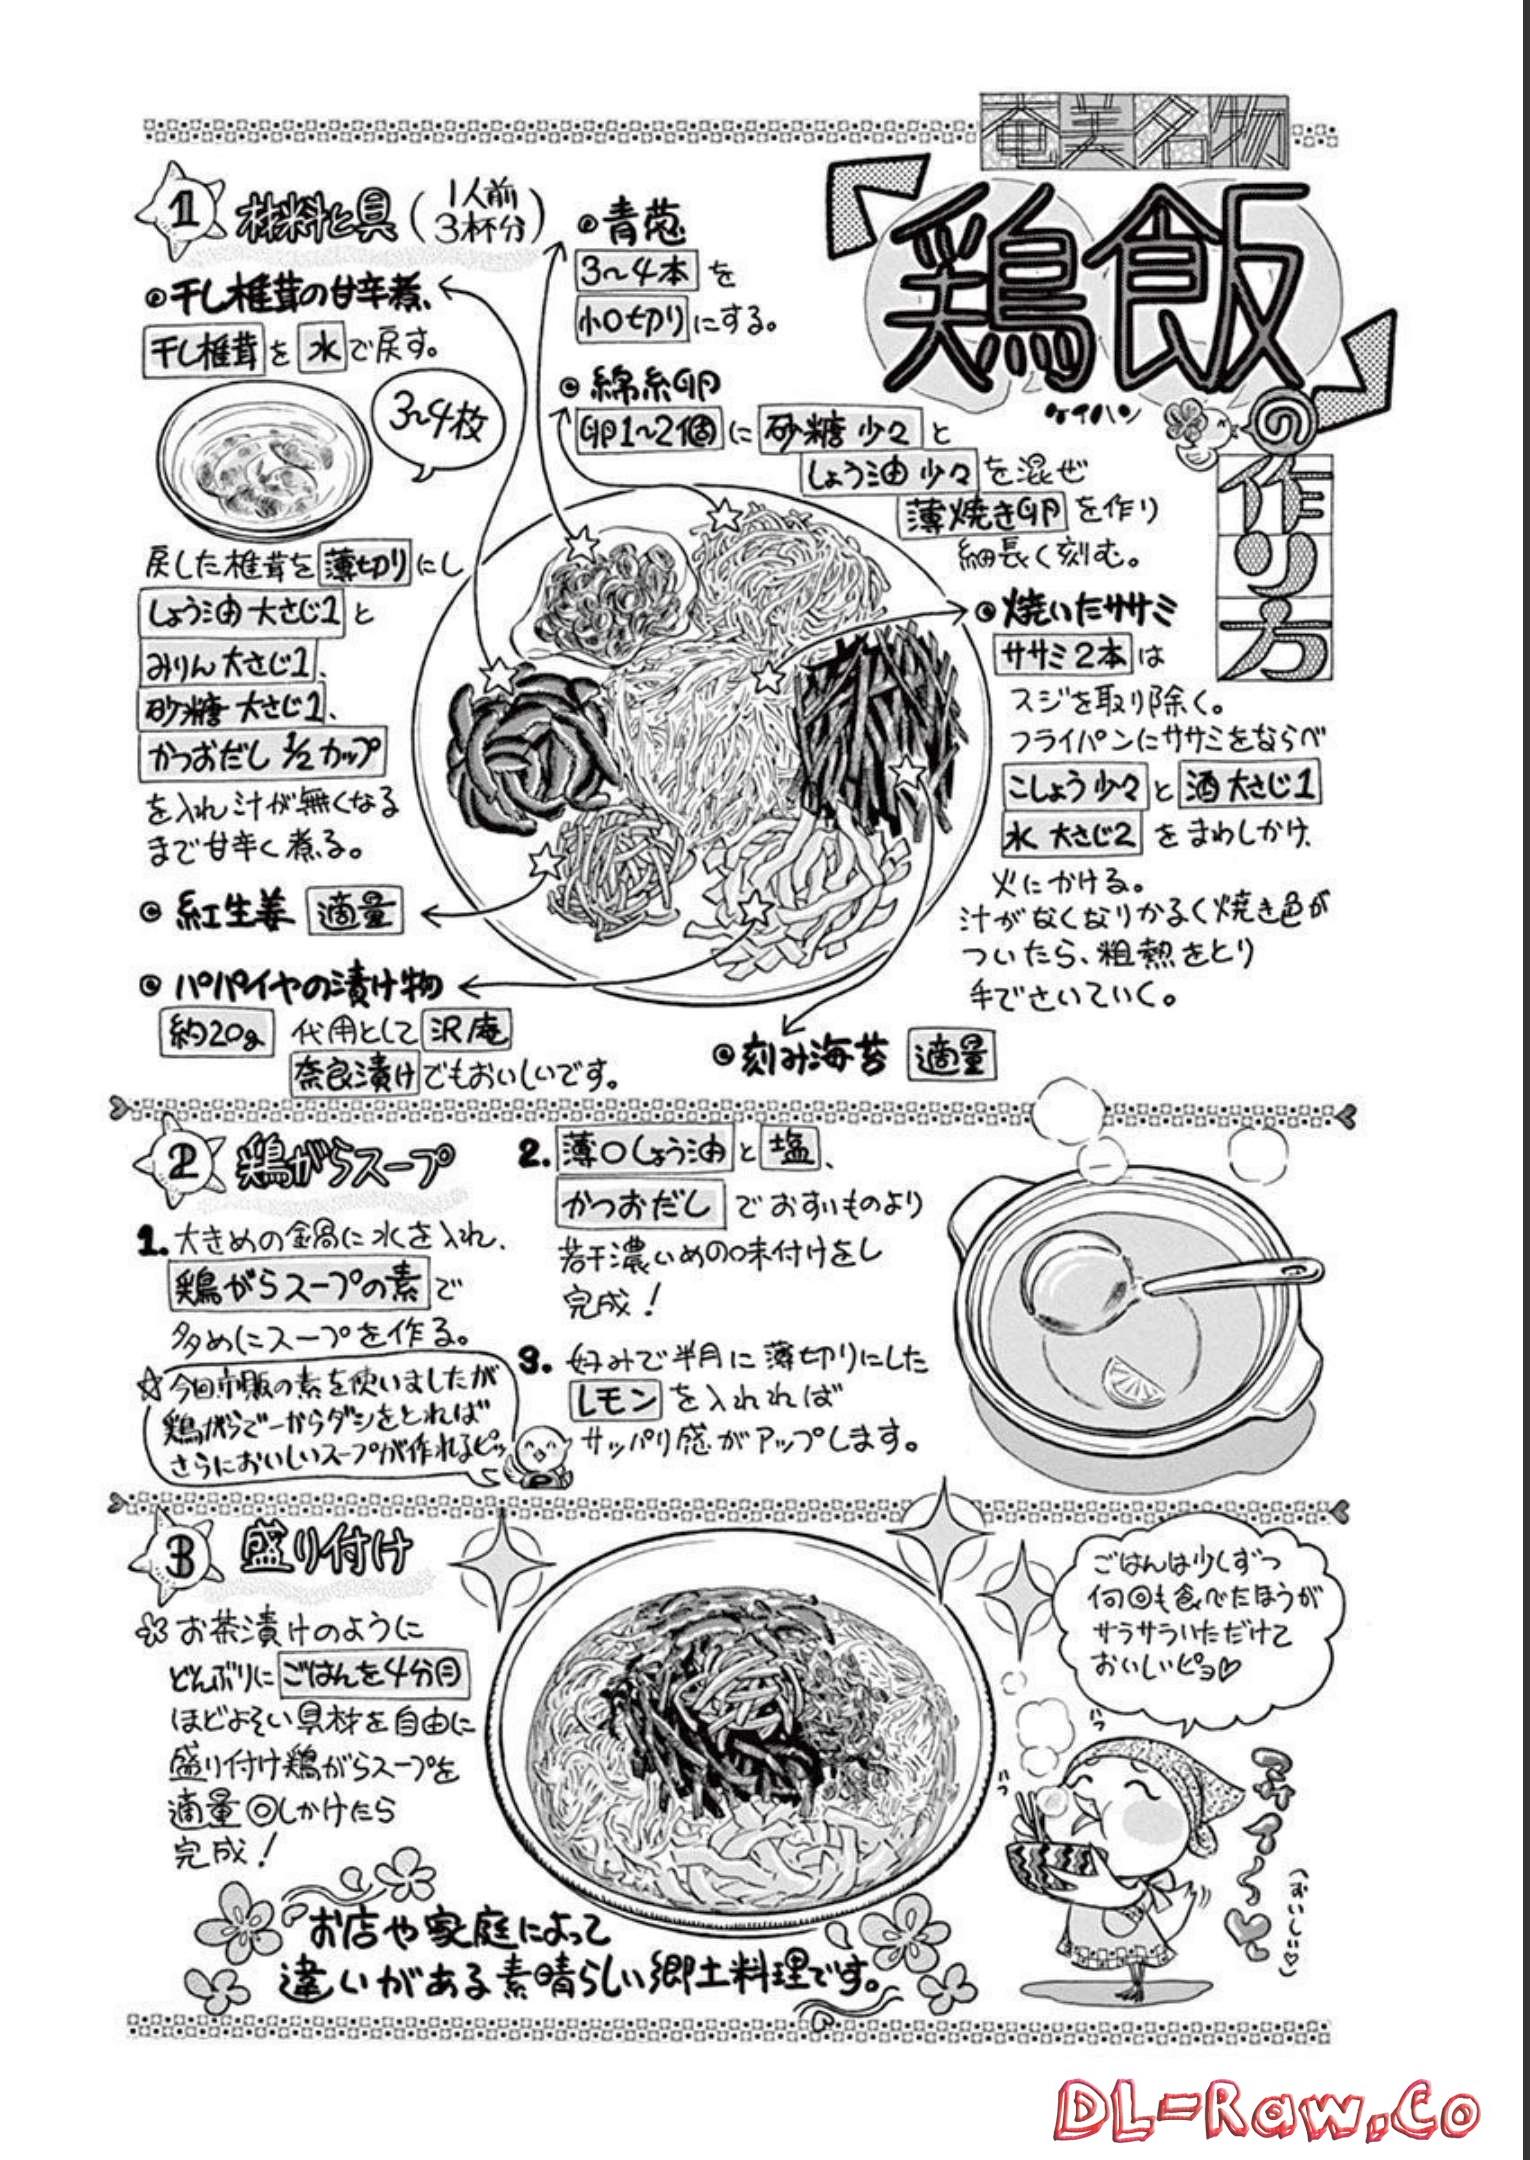 奄美名物
「鶏飯」
ケイハン
の作り方
1 材料と具(1人前3杯分)
干し椎茸の甘辛煮、
干し椎茸を水で戻す。
3〜4枚
戻した椎茸を薄切りにし
しょう油大さじ1と
みりん大さじ1、
砂糖大さじ1、
かつおだし1/2カップ
を入れ汁が無くなる
まで甘辛く煮る。
紅生姜 適量
パパイヤの漬け物
約20g 代用として沢庵
奈良漬けでもおいしいです。
青葱
3〜4本を
小口切りにする。
綿糸卵
卵1〜2個に砂糖少々と
しょう油少々を混ぜ
薄焼き卵を作り
細長く刻む。
焼いたササミ
ササミ2本は
スジを取り除く。
フライパンにササミをならべ
こしょう少々と酒大さじ1
水大さじ2をまわしかけ、
火にかける。
汁がなくなりかるく焼き色が
ついたら、粗熱をとり
手でさいていく。
刻み海苔 適量
2 鶏がらスープ
1. 大きめの鍋に水を入れ、
鶏がらスープの素で
多めにスープを作る。
☆今回市販の素を使いましたが
鶏がらで一からダシをとれば
さらにおいしいスープが作れるピッ
2. 薄口しょう油と塩、
かつおだしでおすいものより
若干濃いめの味付けをし
完成!
3. 好みで半月に薄切りにした
レモンを入れれば
サッパリ感がアップします。
3 盛り付け
お茶漬けのように
どんぶりにごはんを4分目
ほどよそい具材を自由に
盛り付け鶏がらスープを
適量回しかけたら
完成!
ごはんは少しずつ
何回も食べたほうが
サラサラいただけて
おいしいピョ♡
(おいしい♡)
お店や家庭によって
違いがある素晴らしい郷土料理です。
DL-Raw.Co